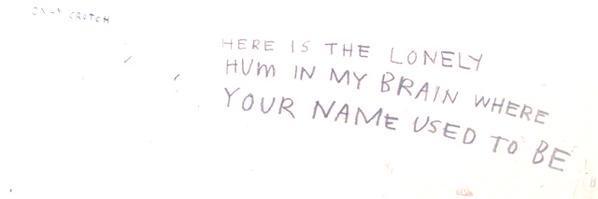 CROTCH
HERE IS THE LONELY
HUM IN MY BRAIN WHERE
YOUR NAME USED TO BE